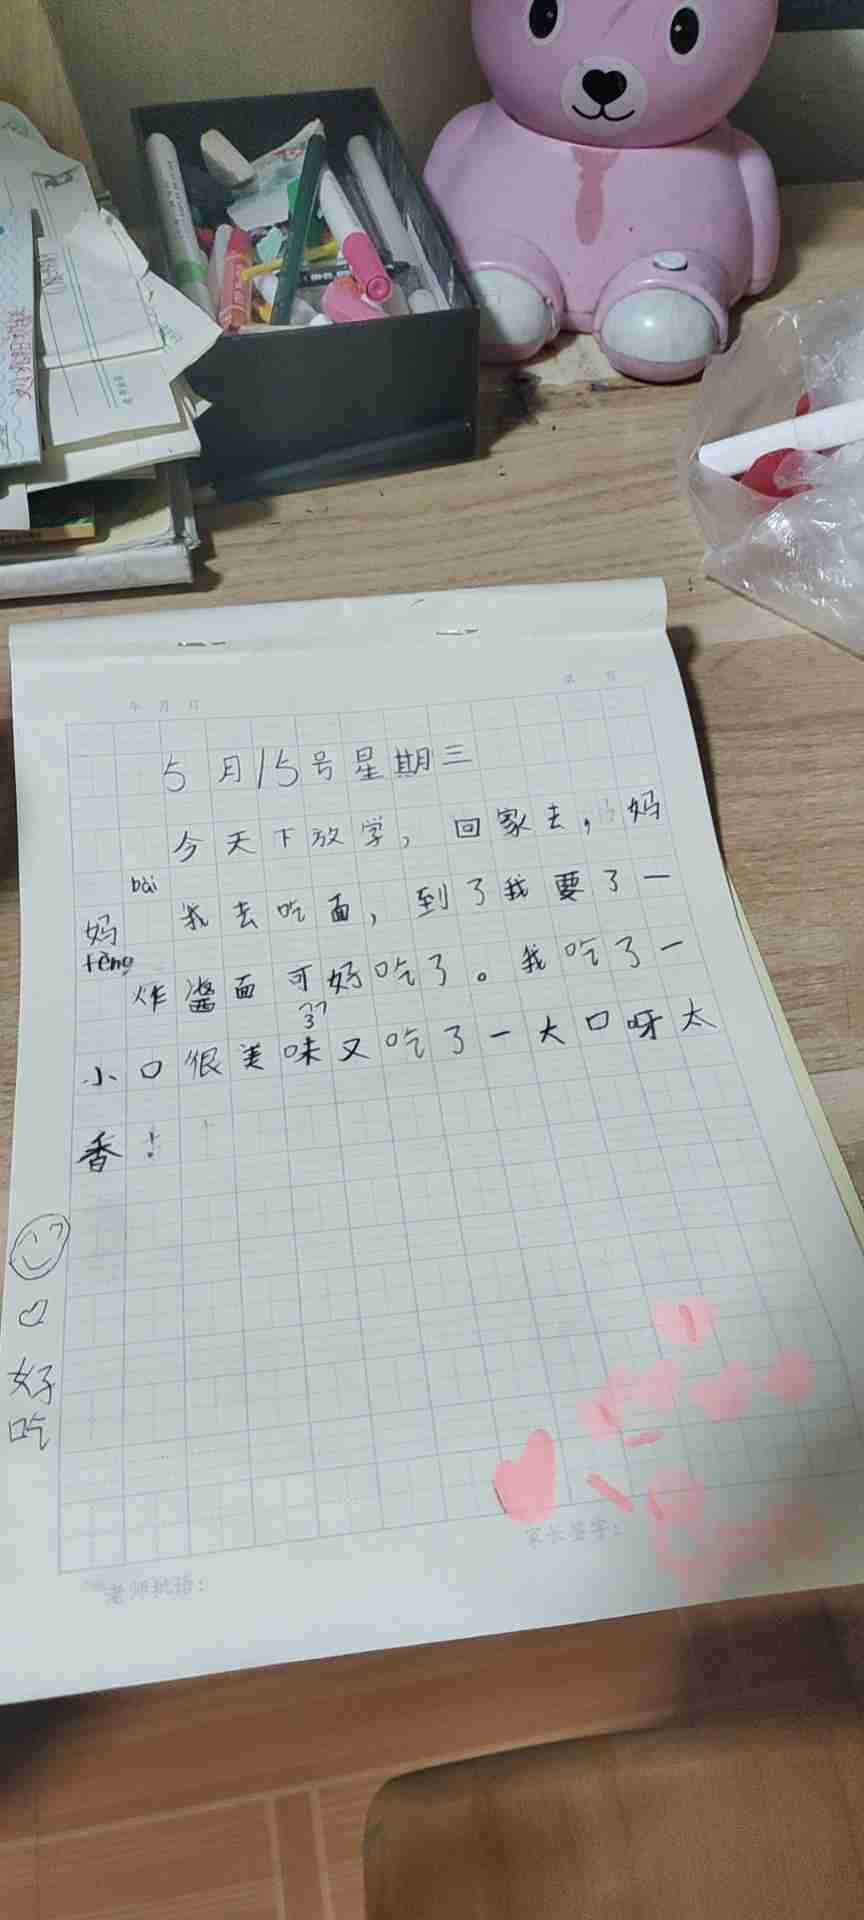 年 月 日
5月15号星期三
今天下放学，回家去，妈
bài
妈 我去吃面，到了我要了一
fèng
炸酱面可好吃了。我吃了一
小口很美味又吃了一大口呀太
香！
好
吃
家长签字：
老师批语：